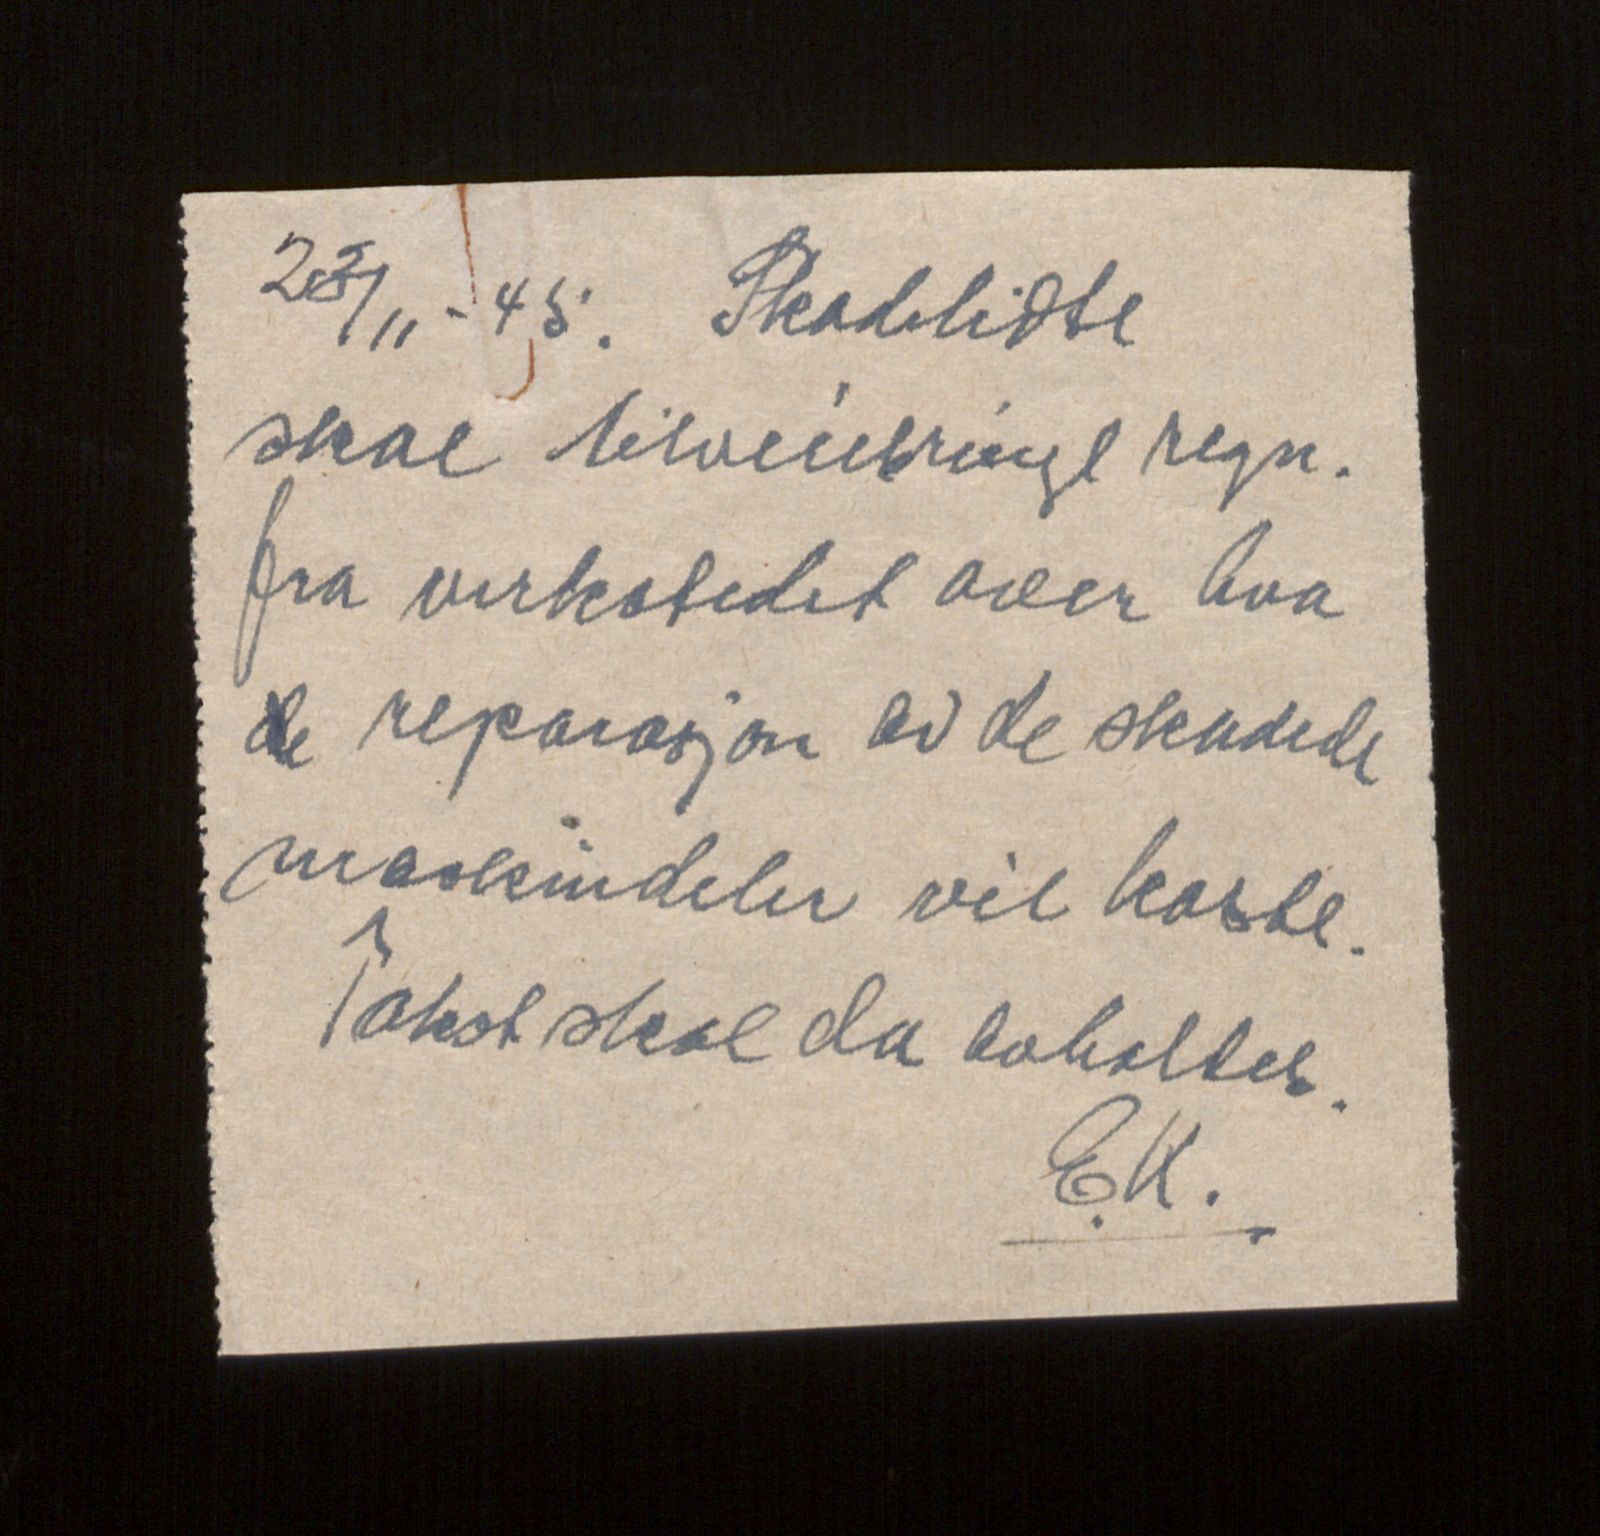 23/11-45. Skadelidte
skal tilveiebringe regn.
fra verkstedet over hva
reparasjon av de skadede
maskindeler vil koste.
Takst skal da avholdes.
E.K.